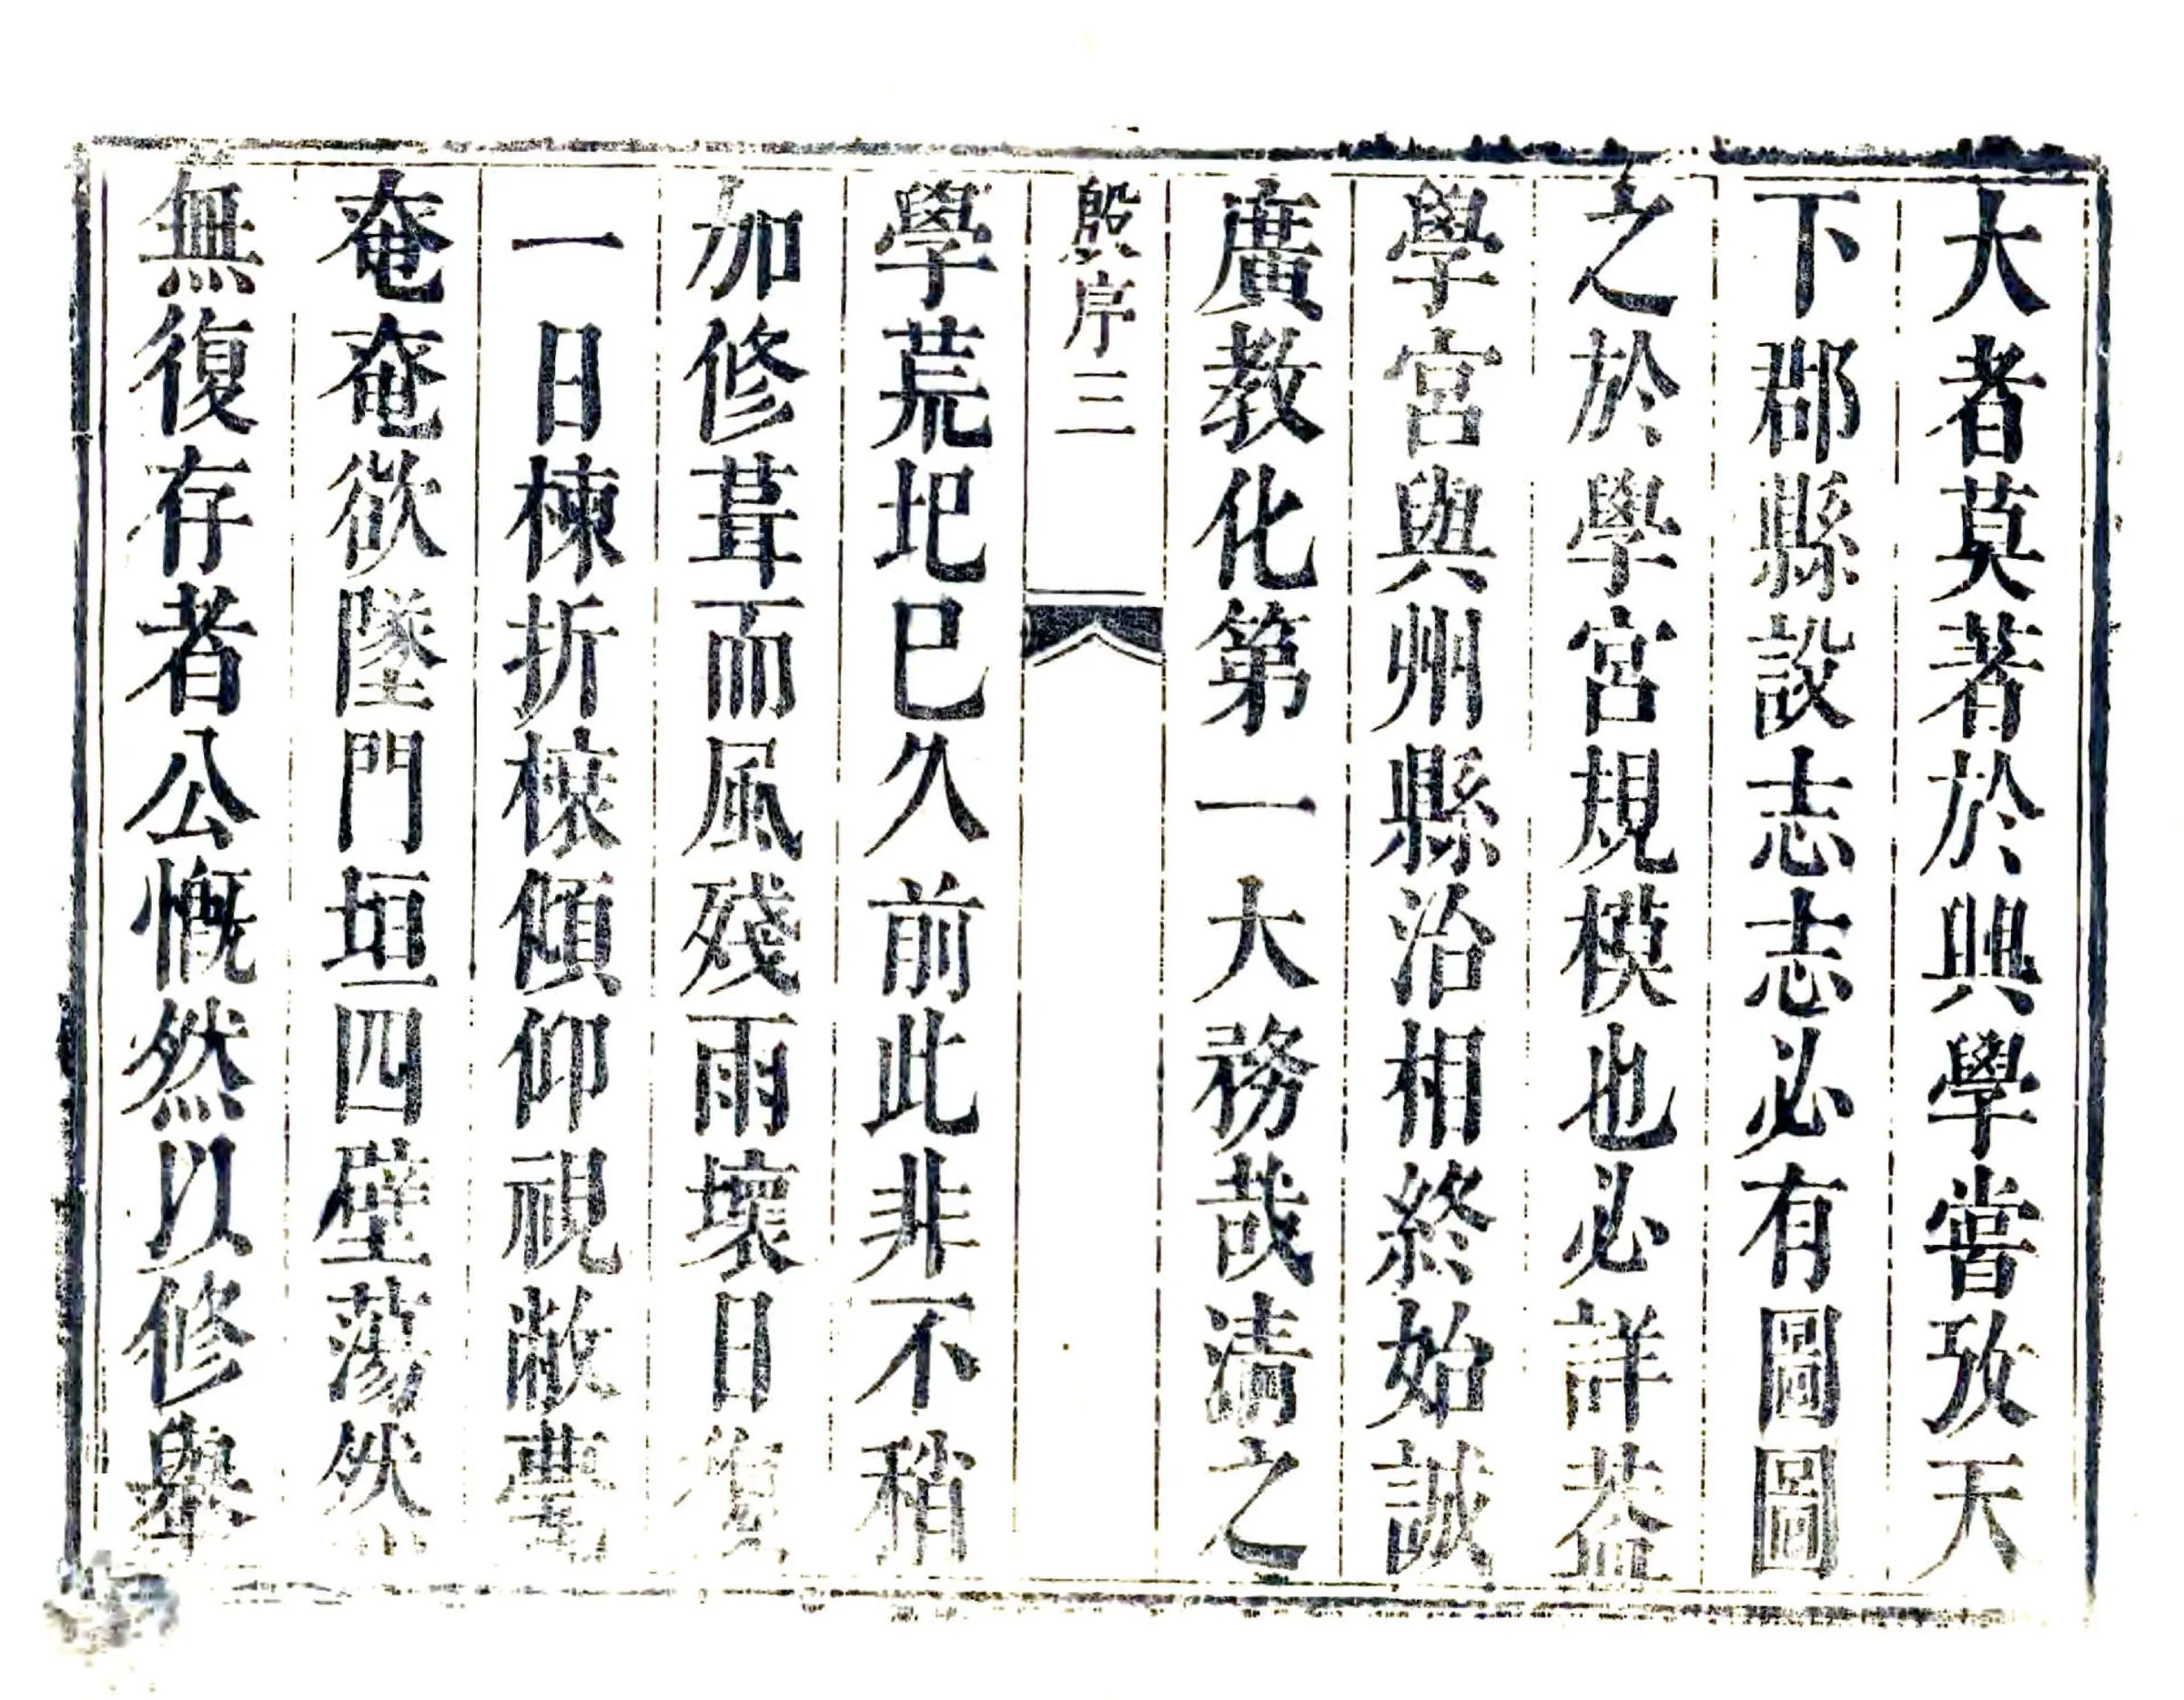 大者莫著於興學嘗攷天
下郡縣設志志必有圖圖
之於學宮規模也必詳葢
學宮與州縣治相終始誠
廣教化第一大務哉淸之
殷序三
學荒圯巳久前此非不稍
加修葺而風殘雨壞日復
一日棟折榱傾仰視敝甍
奄奄欲墜門垣四壁蕩然
無復存者公慨然以修舉